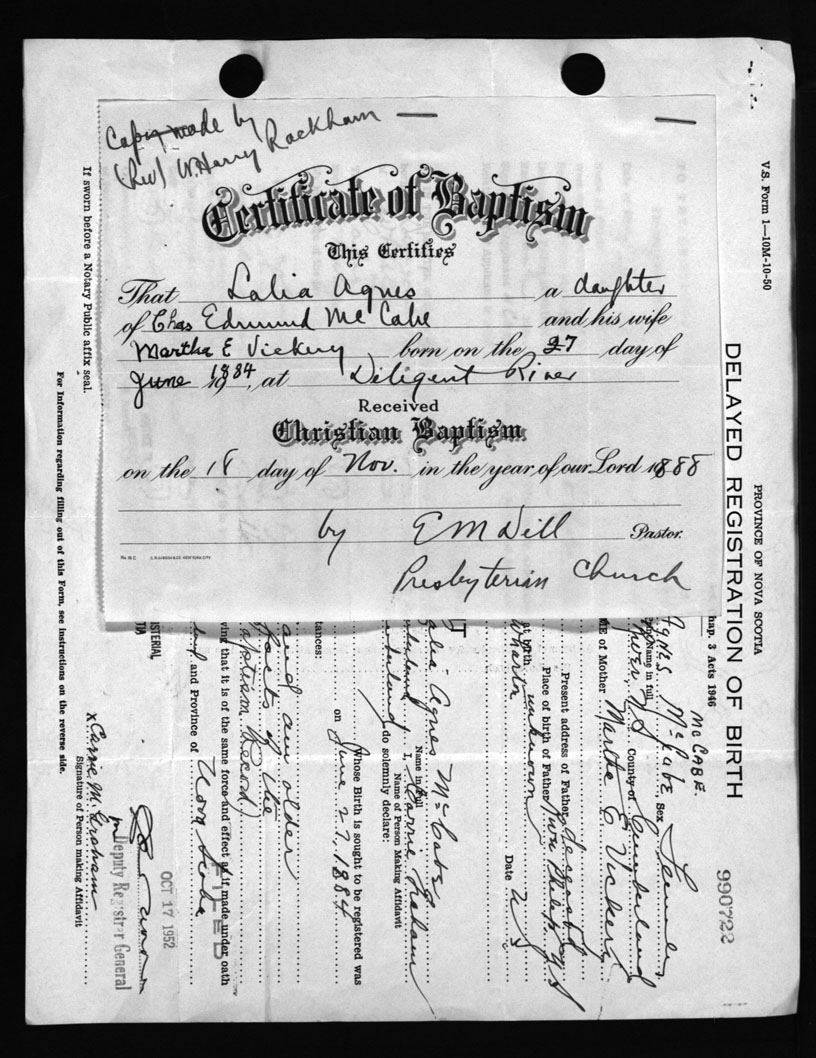 Copy made by
(Rev) W. Harry Rackham
Certificate of Baptism
This Certifies
That Lalia Agnes a daughter
of Chas Edmund McCabe and his wife
Martha E Vickery born on the 27 day of
June 1884, at Diligent River
Received
Christian Baptism
on the 18 day of Nov. in the year of our Lord 1888
by E M Dill Pastor.
Presbyterian Church
V.S. Form 1—10M-10-50
PROVINCE OF NOVA SCOTIA
DELAYED REGISTRATION OF BIRTH
990722
hap. 3 Acts 1946
McCABE.
Agnes McCabe Sex Female
Name in full
River N S County of Cumberland
ME of Mother Martha E Vickery
Present address of Father deceased
Place of birth of Father River Philip N S
at birth unknown
Wharton Date N S
alia Agnes McCabe
Name in full
I, Carrie Graham
Name of Person Making Affidavit
do solemnly declare:
Whose Birth is sought to be registered was
on June 27, 1884
tances:
and am older
facts of the
aptism Record)
ving that it is of the same force and effect as if made under oath
FILED
and Province of Nova Scotia
OCT 17 1952
Deputy Registrar General
x Carrie M. Graham
Signature of Person making Affidavit
If sworn before a Notary Public affix seal.
For Information regarding filling out of this Form, see instructions on the reverse side.